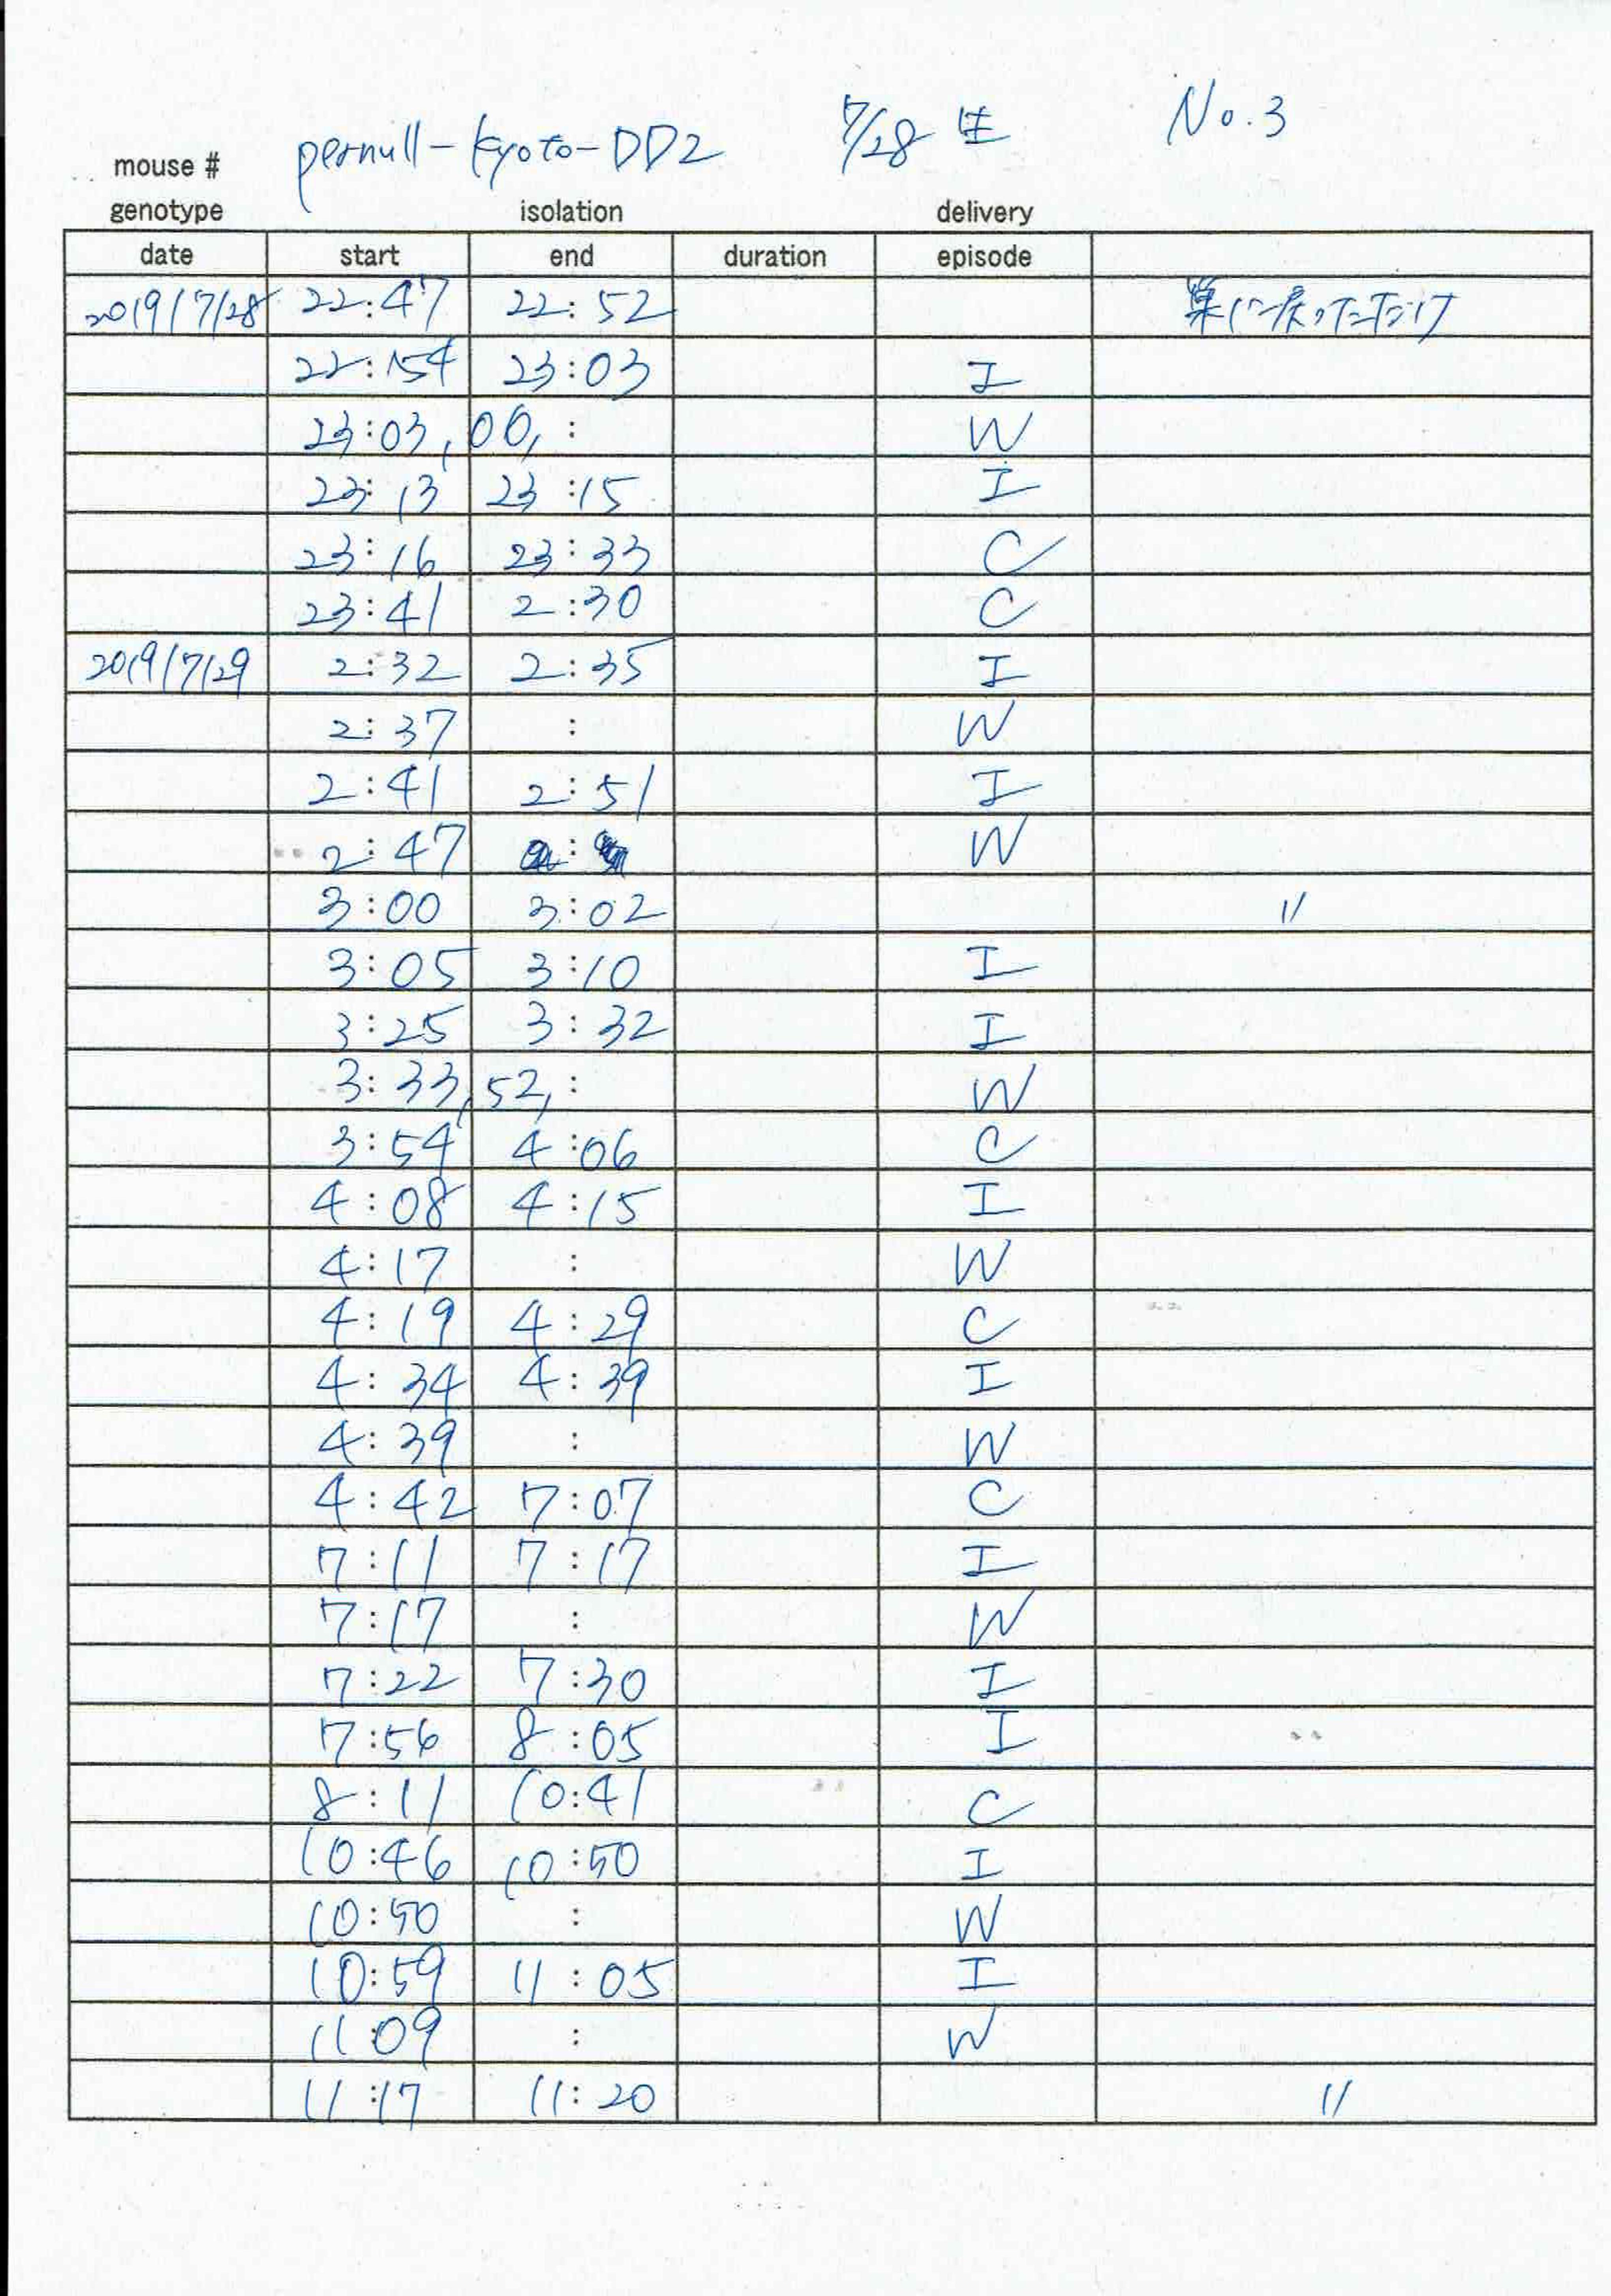 mouse # pernull-kyoto-DD2 7/28 生 No.3
genotype isolation delivery
date start end duration episode
2019/7/28 22:47 22:52 巣に戻っただけ
22:54 23:03 I
23:03, 06, : W
23:13 23:15 I
23:16 23:33 C
23:41 2:30 C
2019/7/29 2:32 2:35 I
2:37 : W
2:41 2:51 I
2:47 : W
3:00 3:02 〃
3:05 3:10 I
3:25 3:32 I
3:33, 52, : W
3:54 4:06 C
4:08 4:15 I
4:17 : W
4:19 4:29 C
4:34 4:39 I
4:39 : W
4:42 7:07 C
7:11 7:17 I
7:17 : W
7:22 7:30 I
7:56 8:05 I
8:11 10:41 C
10:46 10:50 I
10:50 : W
10:59 11:05 I
11:09 : W
11:17 11:20 〃